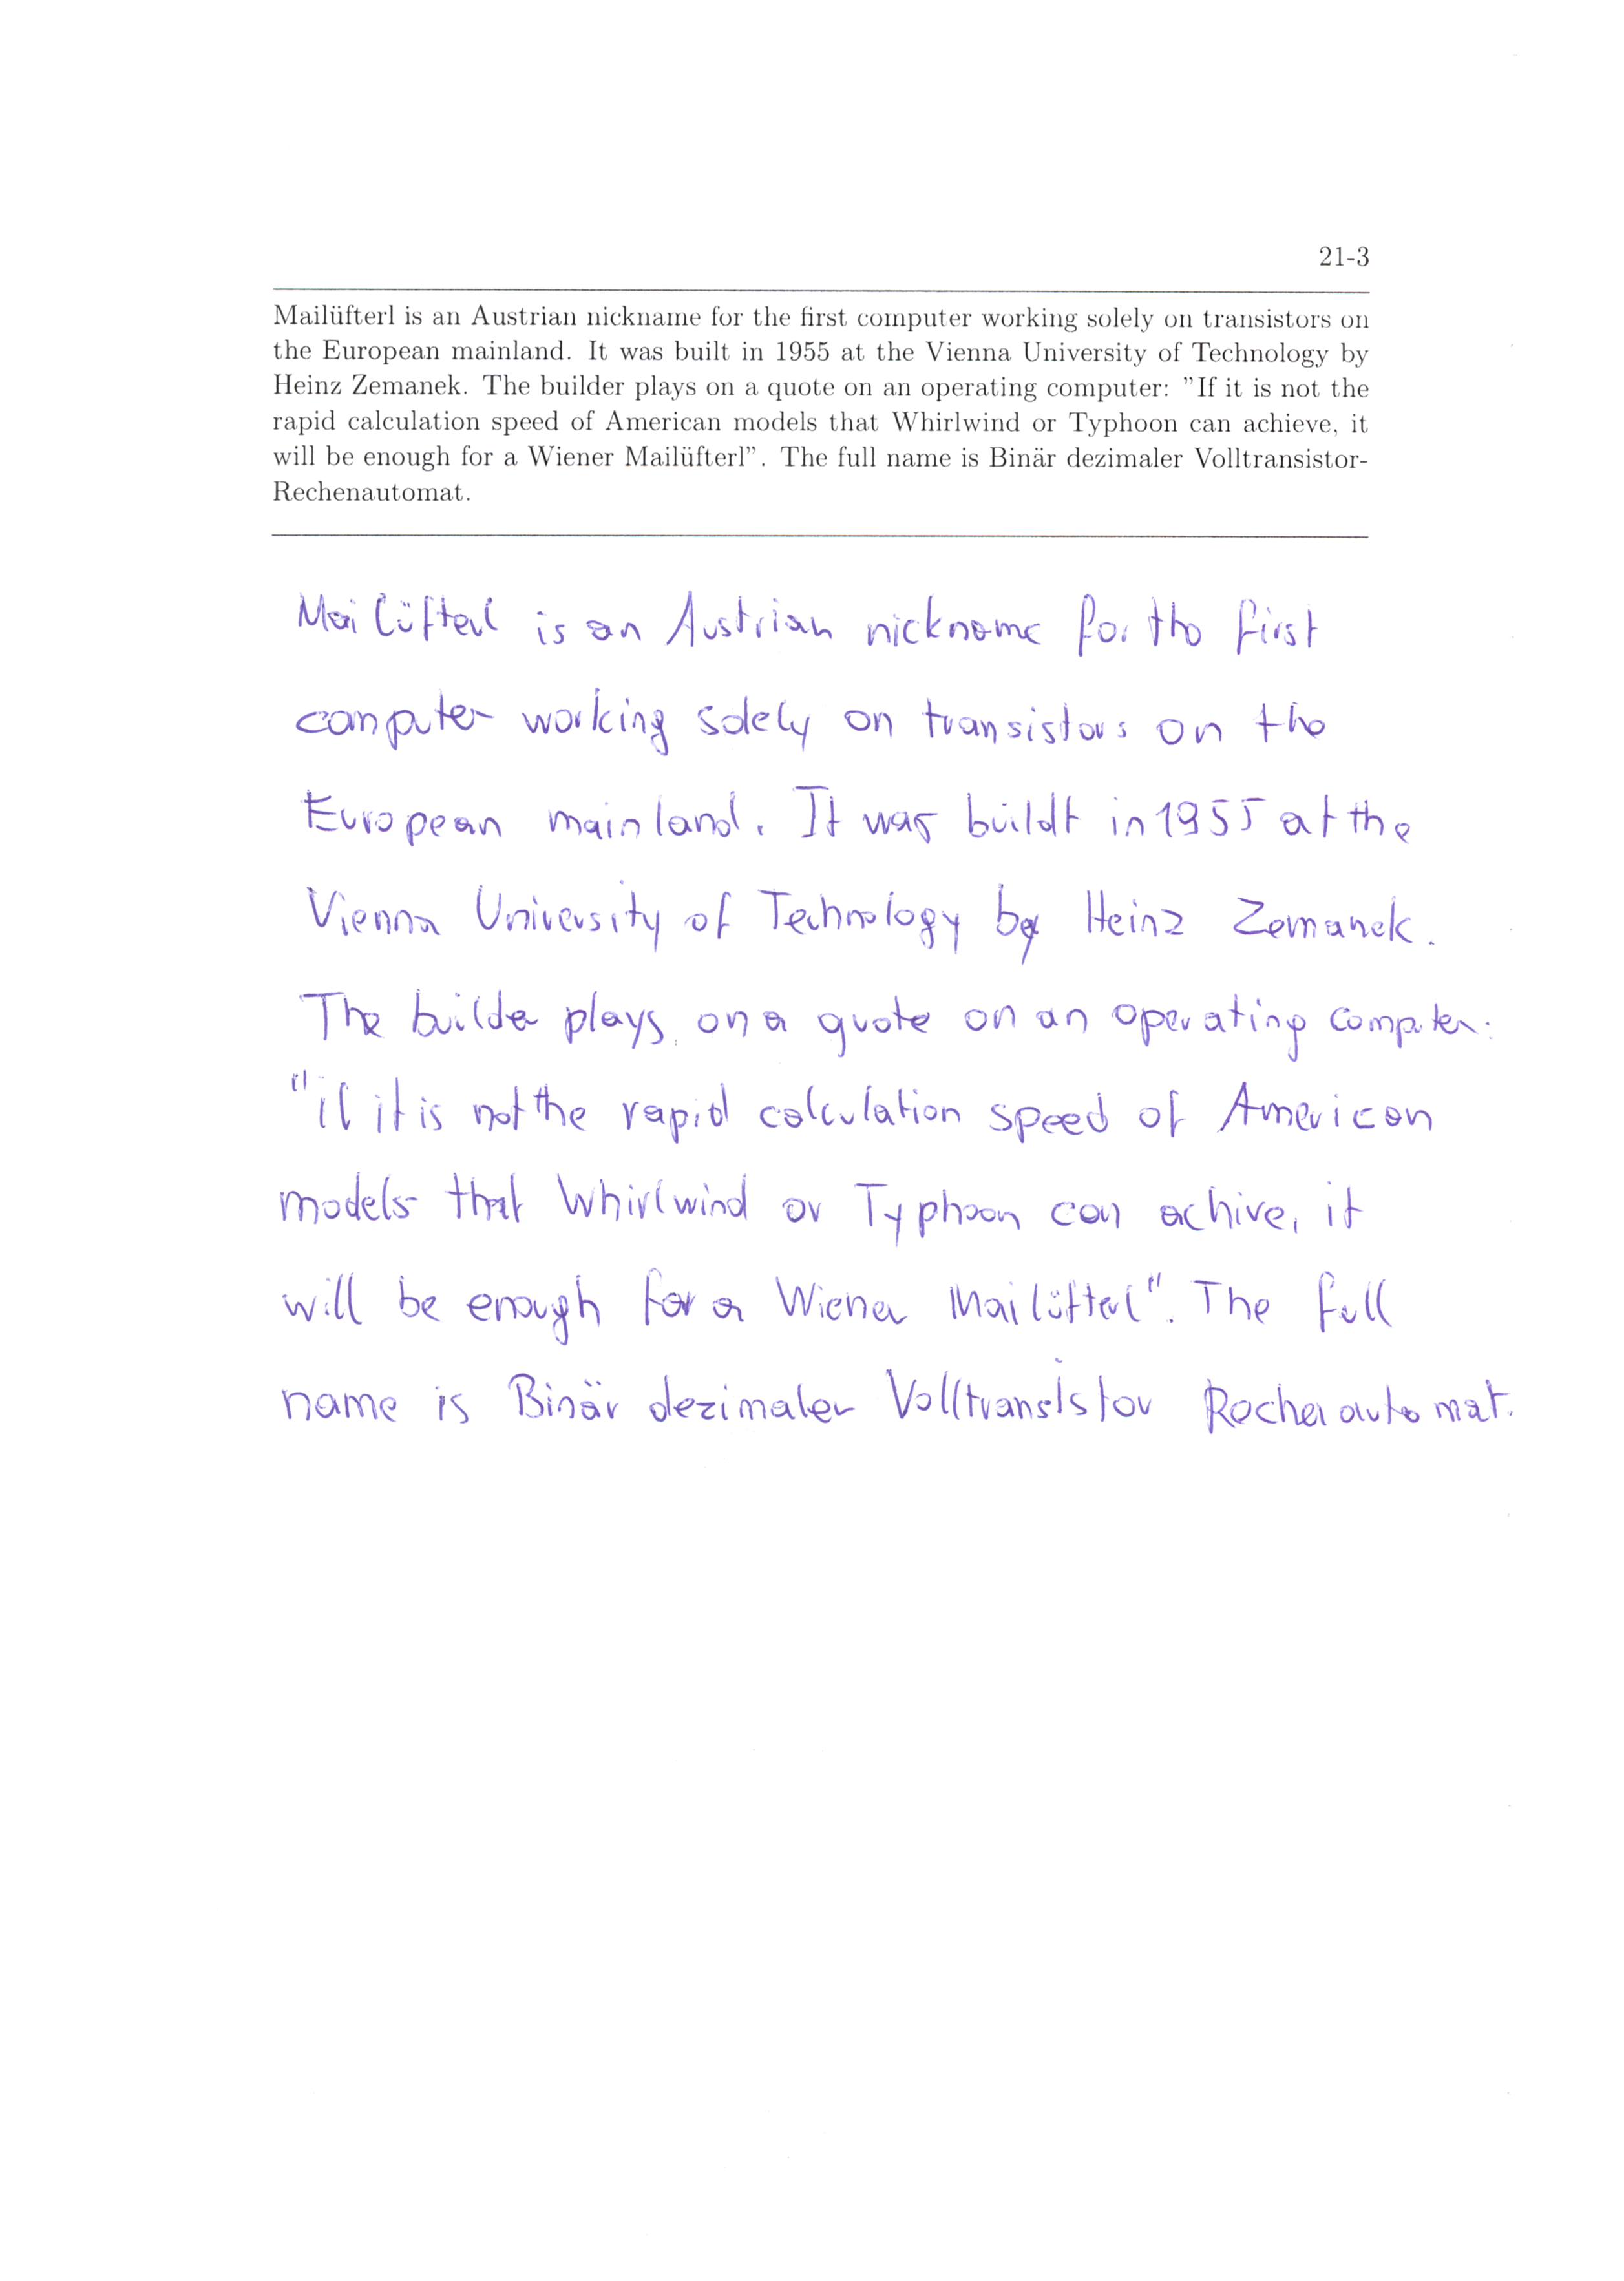 21-3
Mailüfterl is an Austrian nickname for the first computer working solely on transistors on
the European mainland. It was built in 1955 at the Vienna University of Technology by
Heinz Zemanek. The builder plays on a quote on an operating computer: "If it is not the
rapid calculation speed of American models that Whirlwind or Typhoon can achieve, it
will be enough for a Wiener Mailüfterl". The full name is Binär dezimaler Volltransistor-
Rechenautomat.
Mailüfterl is an Austrian nickname for the first
computer working solely on transistors on the
European mainland. It was buildt in 1955 at the
Vienna University of Technology by Heinz Zemanek.
The builder plays on a quote on an operating computer:
"if it is not the rapid calculation speed of American
models that Whirlwind or Typhoon can achive, it
will be enough for a Wiener Mailüfterl". The full
name is Binär dezimaler Volltransistor Rechenautomat.